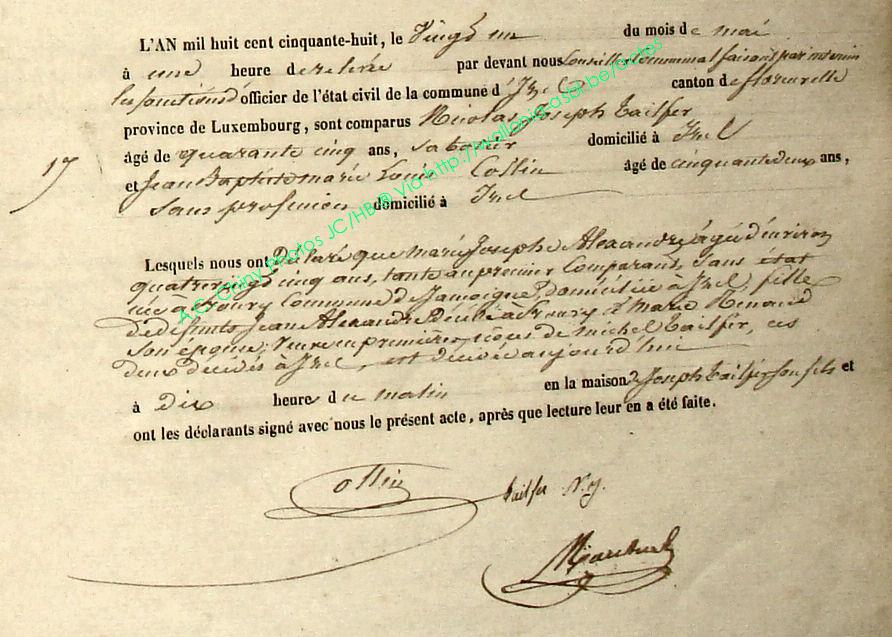 L'AN mil huit cent cinquante-huit, le Vingt un du mois de mai
à une heure de relevée par devant nous Conseiller Communal faisant par interim
les fonctions d'officier de l'état civil de la commune d'Izel canton de florenville
province de Luxembourg, sont comparus Nicolas Joseph Tailfer
âgé de quarante cinq ans, sabotier domicilié à Izel
17
et Jean Baptiste marie Louis Collin âgé de cinquante deux ans,
sans profession domicilié à Izel
Lesquels nous ont Déclaré que marie Josephe Alexandre âgée d'environ
quatrevingt cinq ans, tante au premier Comparant, sans état
née à Commune de Jamoigne, domiciliée à Izel, fille
de defunts Jean Alexandre décédé à & Marie Renaud
son épouse, Veuve en premières nôces de michel Tailfer, ces
deux décédés à Izel, est décédée aujourd'hui
à dix heures du matin en la maison de Joseph Tailfer son fils et
ont les déclarants signé avec nous le présent acte, après que lecture leur en a été faite.
Collin
Tailfer N. J.
A.C. Chiny Photos JC/HB ® Via http://wallonia-asbl.be/actes